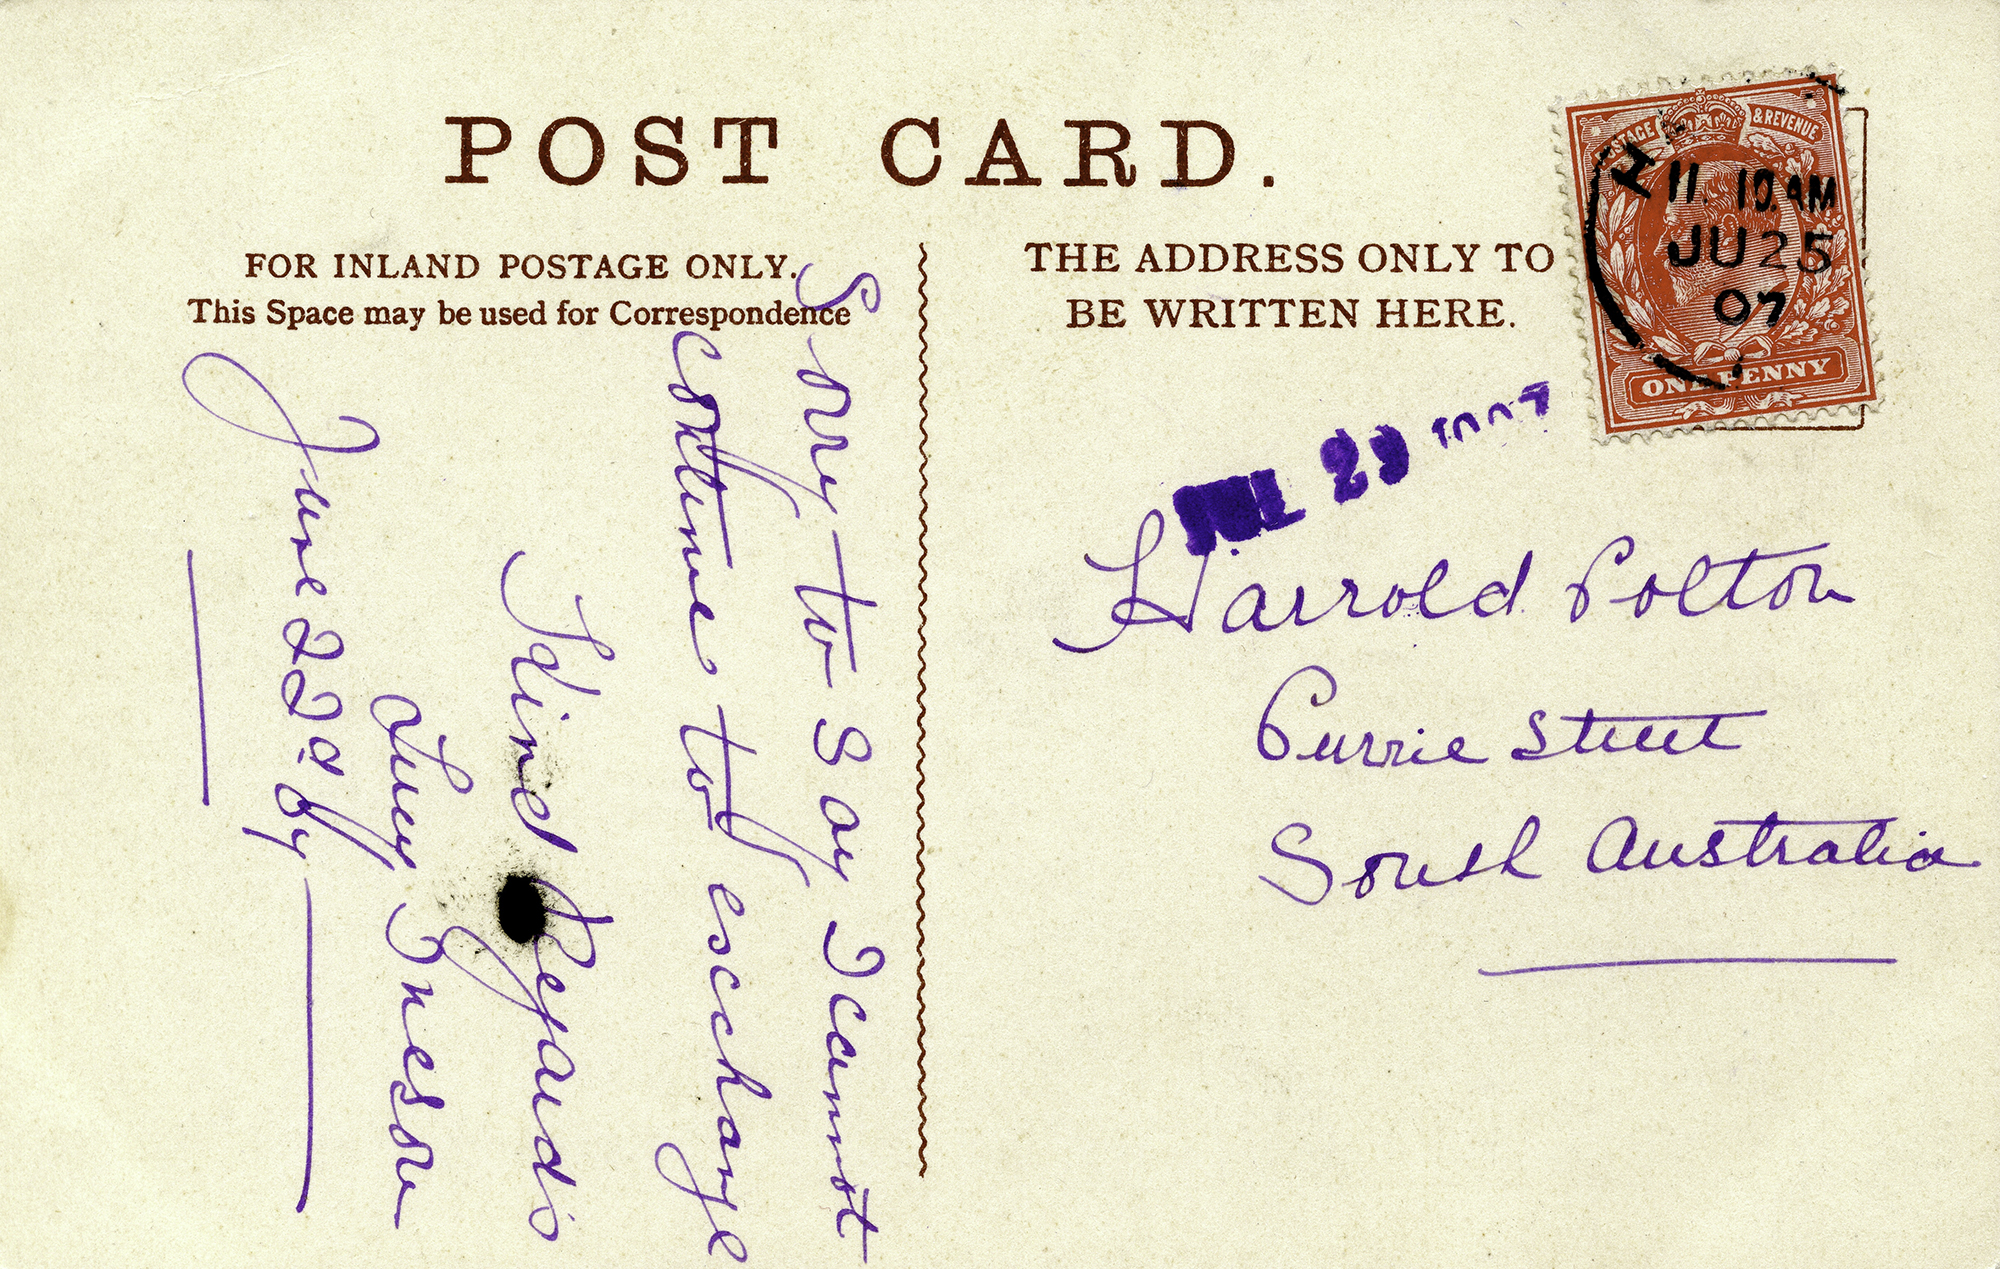 POST CARD.
FOR INLAND POSTAGE ONLY.
This Space may be used for Correspondence
THE ADDRESS ONLY TO
BE WRITTEN HERE.
POSTAGE & REVENUE
H
11. 10. AM
JU 25
07
ONE PENNY
JUL 29 1907
Harrold Polton
Currie Street
South Australia
Sory to Say I cannot
contune to exchange
Kind Regards
Lucy
June 22nd